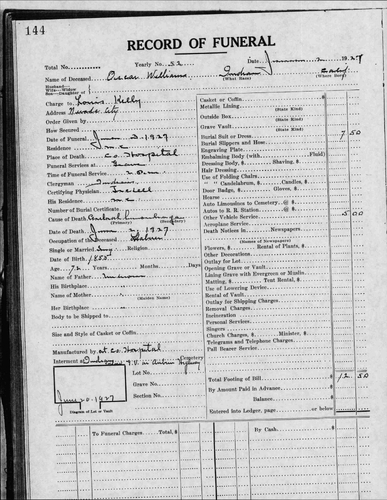 144
RECORD OF FUNERAL
Total No. Yearly No. 52 Date 1927
Name of Deceased Oscar Williams
(What Race) (Where Born)
Husband
Wife—Widow
Son—Daughter of
Charge to Louis Kelly
Address Nevada City
Order Given by
How Secured
Date of Funeral June 2, 1927
Residence N.C.
Place of Death Co. Hospital
Funeral Services at
Time of Funeral Service 2 P.m.
Clergyman
Certifying Physician
His Residence N.C.
Number of Burial Certificate
Cause of Death
(Primary) (Secondary)
Date of Death 1927
Occupation of the Deceased
Single or Married Religion
Date of Birth 1855
Age 72 Years Months Days
Name of Father
His Birthplace
Name of Mother
(Maiden Name)
Her Birthplace
Body to be Shipped to
Size and Style of Casket or Coffin
Manufactured by at Co. Hospital
Interment at Cemetery
Lot No.
Grave No.
Section No.
Diagram of Lot or Vault
Casket or Coffin
Metallic Lining
(State Kind)
Outside Box
(State Kind)
Grave Vault
(State Kind)
Burial Suit or Dress 7 50
Burial Slippers and Hose
Engraving Plate
Embalming Body (with Fluid)
Dressing Body, $ Shaving, $
Hair Dressing
Use of Folding Chairs
" " Candelabrum, $ Candles, $
Door Badge, $ Gloves, $
Hearse
Auto Limousines to Cemetery @ $
Autos to R. R. Station @ $
Other Vehicle Service 5 00
Aeroplane Service
Death Notices in Newspapers
(Names of Newspapers)
Flowers, $ Rental of Plants, $
Other Decorations
Outlay for Lot
Opening Grave or Vault
Lining Grave with Evergreen or Muslin
Matting, $ Tent Rental, $
Use of Lowering Device
Rental of Vault
Outlay for Shipping Charges
Removal Charges
Incineration
Personal Services
Singers
Church Charges, $ Minister, $
Telegrams and Telephone Charges
Pall Bearer Service
Total Footing of Bill $ 12 50
By Amount Paid in Advance
Balance
Entered into Ledger, page or below.
To Funeral Charges Total, $ By Cash $